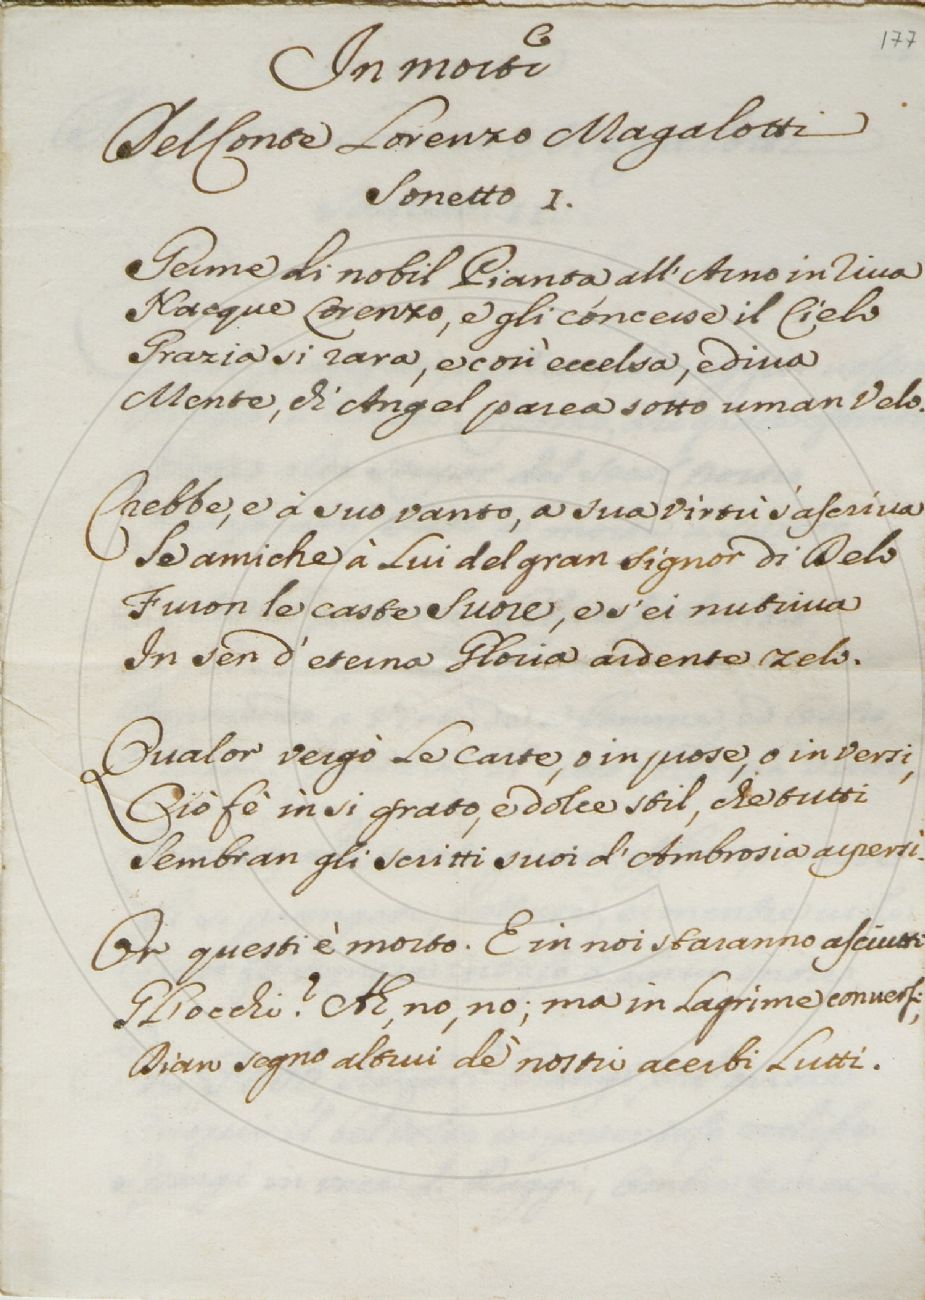 177
In morte
Del Conte Lorenzo Magalotti
Sonetto 1.
Germe di nobil Pianta all'Arno in riva
Nacque Lorenzo, e gli concesse il Cielo
Grazia si rara, e così eccelsa, e diva
Mente, ch'Angel parea sotto uman Velo.
Crebbe, e à suo vanto, a sua virtù s'ascriva
Se amiche à Lui del gran Signor di Delo
Furon le caste Suore, e s'ei nutriva
In sen d'eterna Gloria ardente zelo.
Qualor vergò Le Carte, o in prose, o in versi,
Ciò fè in si grato, e dolce stil, che tutti
Sembran gli scritti suoi d'Ambrosia aspersi.
Or questi è morto. E in noi staranno asciutti
Gl'occhi? Ah, no, no; ma in Lagrime conversi,
Dian segno altrui de' nostri acerbi Lutti.